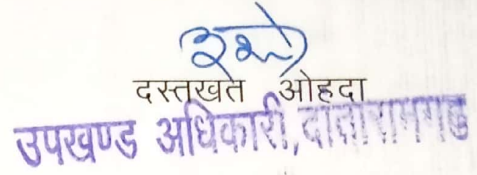 दस्तखत ओहदा
उपखण्ड अधिकारी, दांतारामगढ